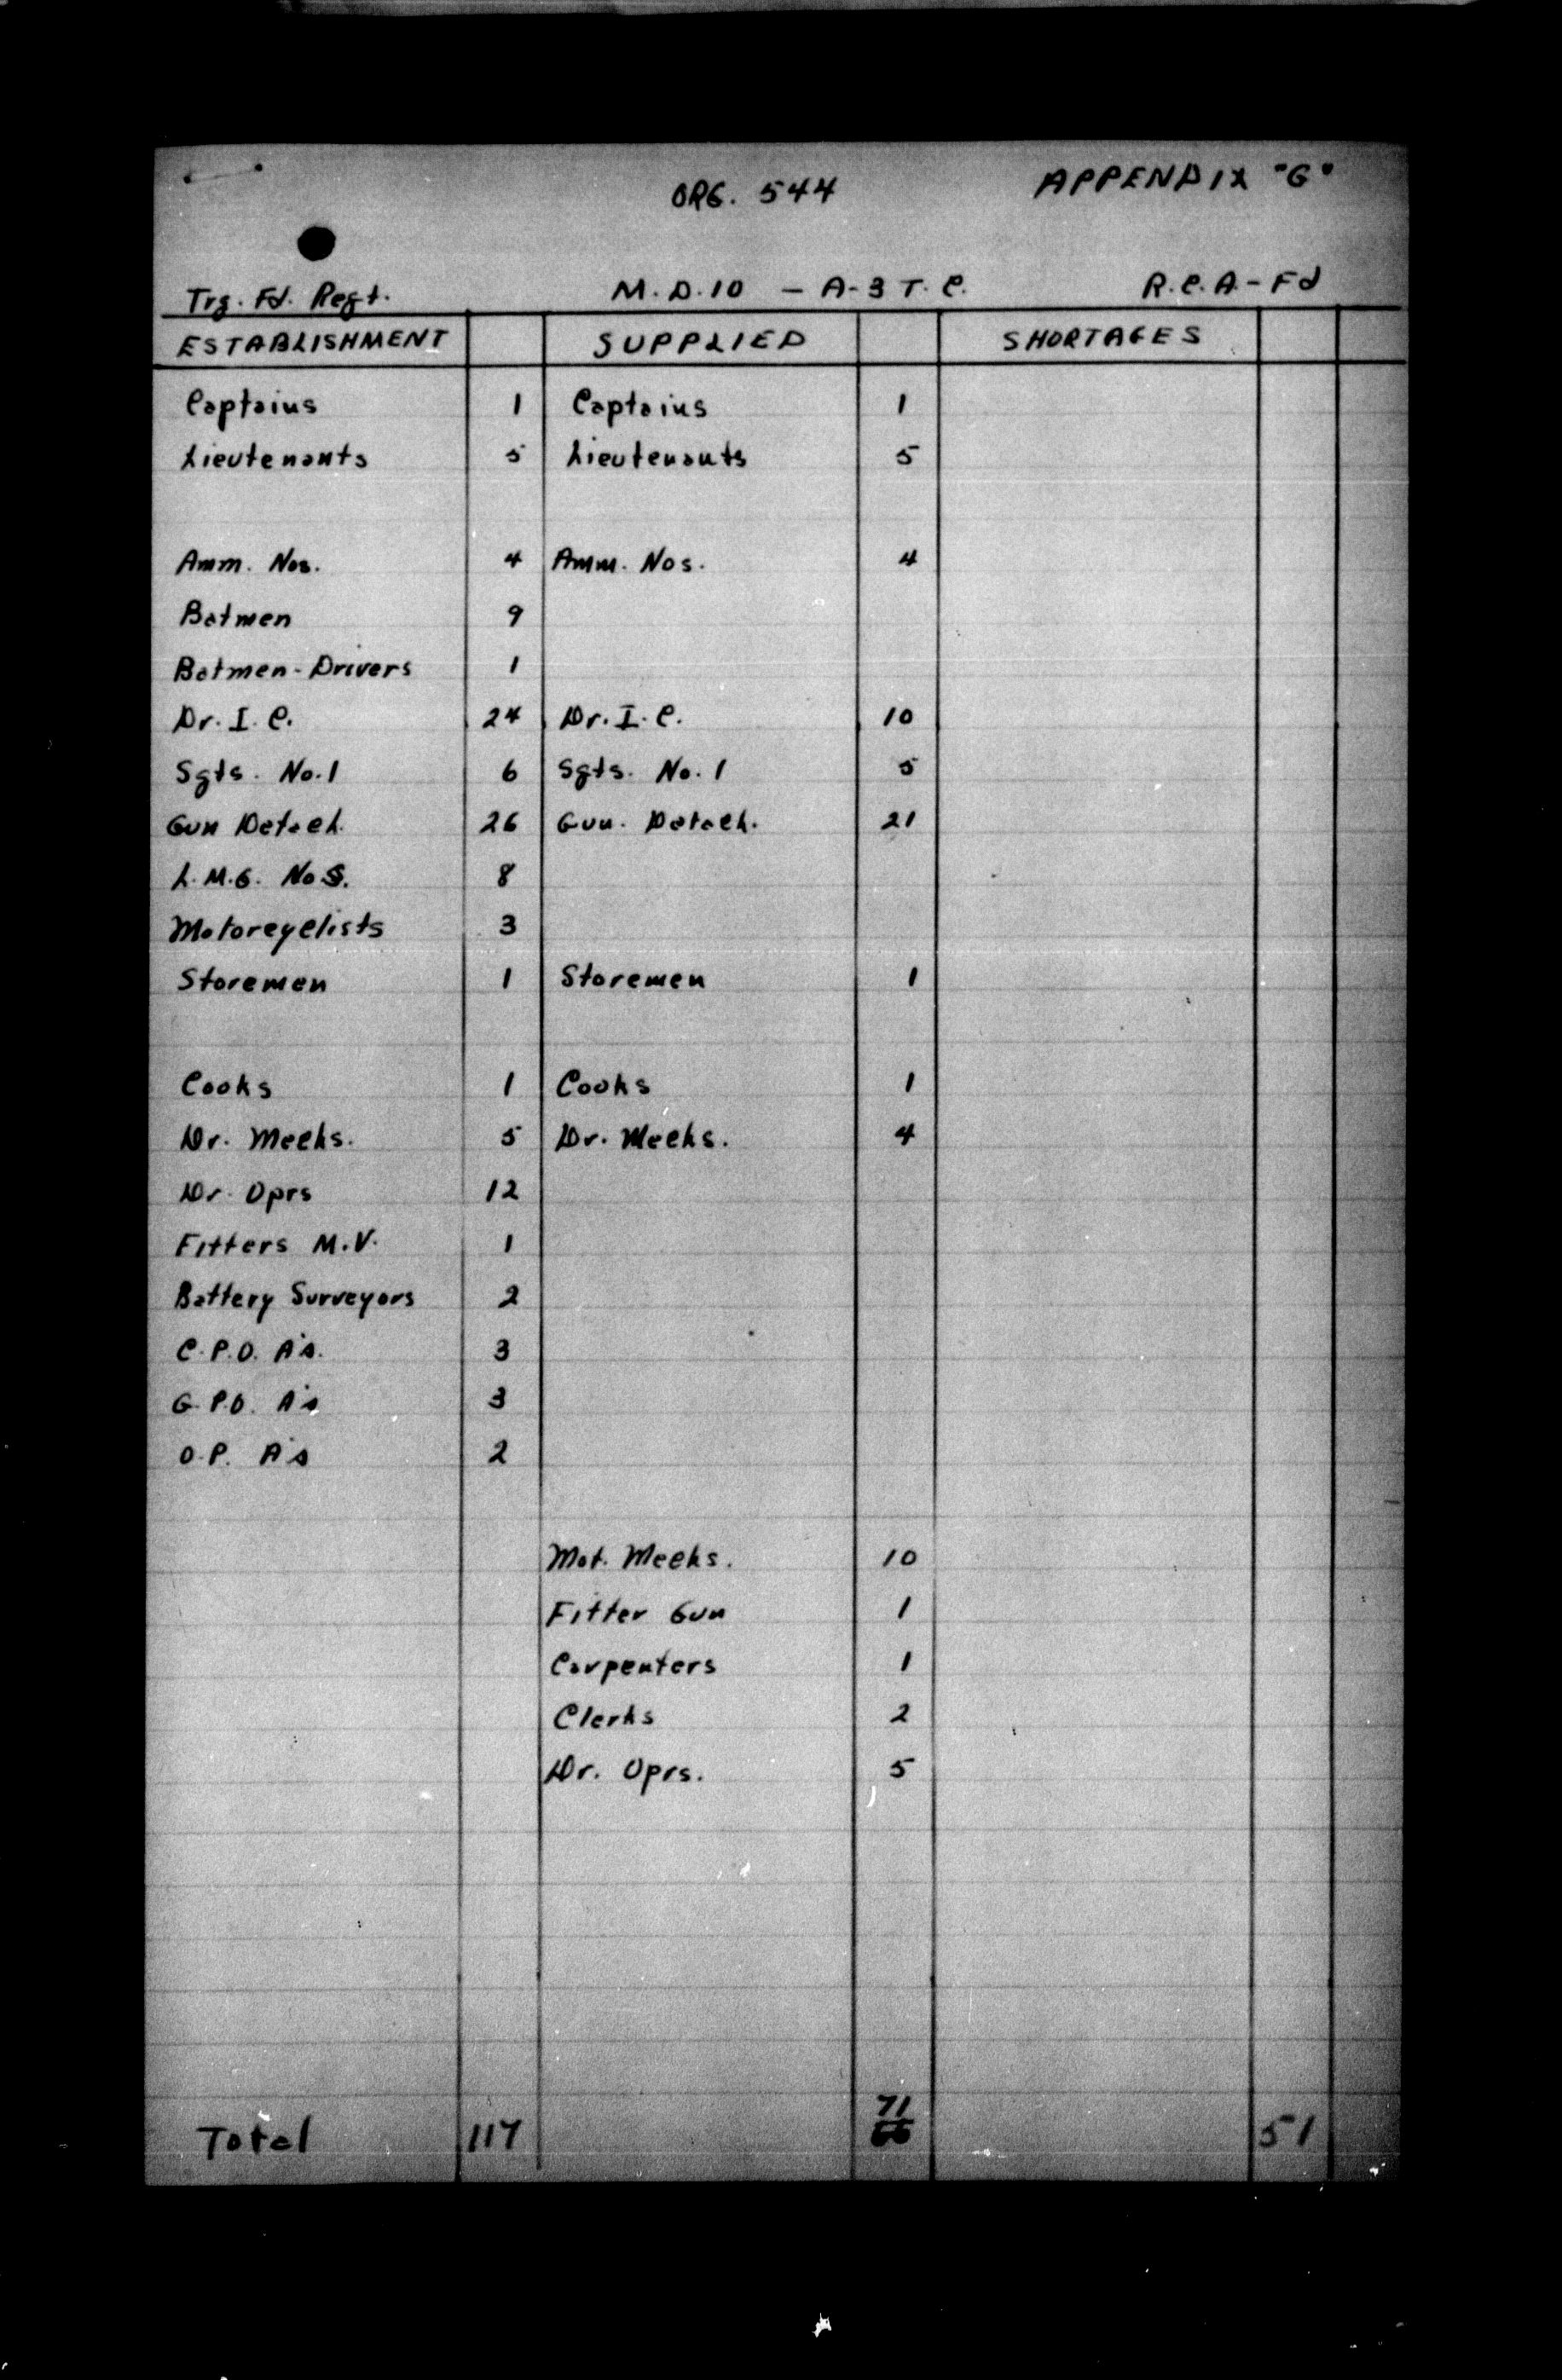 ORG. 544 APPENDIX "G"
Trg. Fd. Regt. M.D.10 - A-3 T.C. R.C.A.-Fd
ESTABLISHMENT SUPPLIED SHORTAGES
Captains 1 Captains 1
Lieutenants 5 Lieutenants 5
Amm. Nos. 4 Amm. Nos. 4
Batmen 9
Batmen-Drivers 1
Dr. I. C. 24 Dr. I. C. 10
Sgts. No.1 6 Sgts. No. 1 5
Gun Detach. 26 Gun. Detach. 21
L.M.G. Nos. 8
Motorcyclists 3
Storemen 1 Storemen 1
Cooks 1 Cooks 1
Dr. Mechs. 5 Dr. Mechs. 4
Dr. Oprs 12
Fitters M.V. 1
Battery Surveyors 2
C.P.O. A's. 3
G.P.O. A's 3
O.P. A's 2
Mot. Mechs. 10
Fitter Gun 1
Carpenters 1
Clerks 2
Dr. Oprs. 5
71
Total 117 66 51